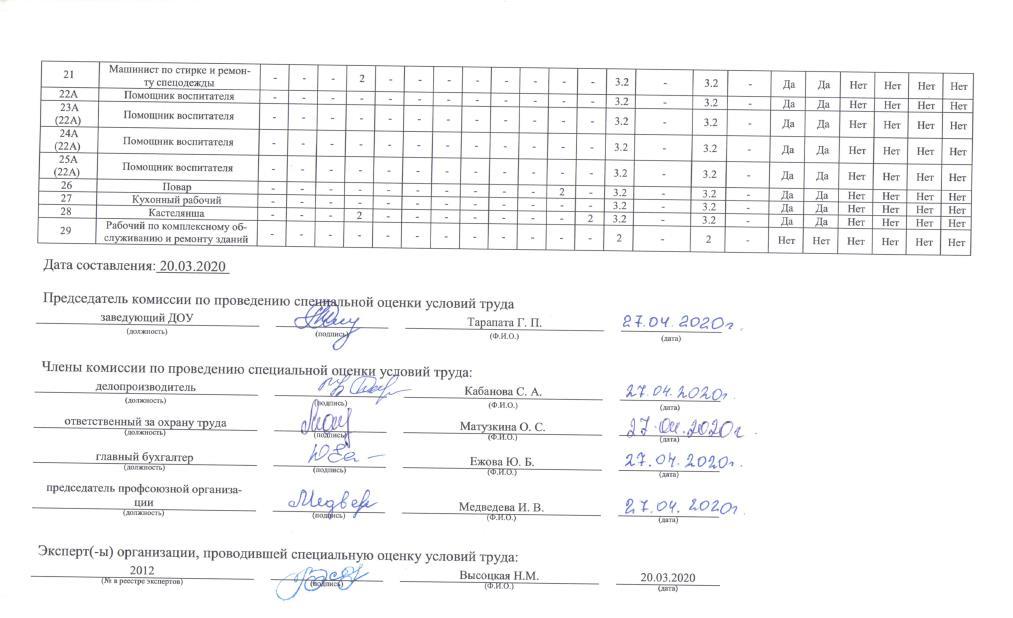 21 Машинист по стирке и ремон- - - - 2 - - - - - - - - 3.2 - 3.2 - Да Да Нет Нет Нет Нет
ту спецодежды
22А Помощник воспитателя - - - - - - - - - - - - 3.2 - 3.2 - Да Да Нет Нет Нет Нет
23А Помощник воспитателя - - - - - - - - - - - - 3.2 - 3.2 - Да Да Нет Нет Нет Нет
(22А)
24А Помощник воспитателя - - - - - - - - - - - - 3.2 - 3.2 - Да Да Нет Нет Нет Нет
(22А)
25А Помощник воспитателя - - - - - - - - - - - - 3.2 - 3.2 - Да Да Нет Нет Нет Нет
(22А)
26 Повар - - - - - - - - - - 2 - 3.2 - 3.2 - Да Да Нет Нет Нет Нет
27 Кухонный рабочий - - - - - - - - - - - - 3.2 - 3.2 - Да Да Нет Нет Нет Нет
28 Кастелянша - - - 2 - - - - - - - 2 3.2 - 3.2 - Да Да Нет Нет Нет Нет
29 Рабочий по комплексному об- - - - - - - - - - - - - 2 - 2 - Нет Нет Нет Нет Нет Нет
служиванию и ремонту зданий
Дата составления: 20.03.2020
Председатель комиссии по проведению специальной оценки условий труда
заведующий ДОУ Тарапата Г. П. 27.04.2020г.
(должность) (подпись) (Ф.И.О.) (дата)
Члены комиссии по проведению специальной оценки условий труда:
делопроизводитель Кабанова С. А. 27.04.2020г.
(должность) (подпись) (Ф.И.О.) (дата)
ответственный за охрану труда Матузкина О. С. 27.04.2020г.
(должность) (подпись) (Ф.И.О.) (дата)
главный бухгалтер Ежова Ю. Б. 27.04.2020г.
(должность) (подпись) (Ф.И.О.) (дата)
председатель профсоюзной организа-
ции Медведева И. В. 27.04.2020г.
(должность) (подпись) (Ф.И.О.) (дата)
Эксперт(-ы) организации, проводившей специальную оценку условий труда:
2012 Высоцкая Н.М. 20.03.2020
(№ в реестре экспертов) (подпись) (Ф.И.О.) (дата)